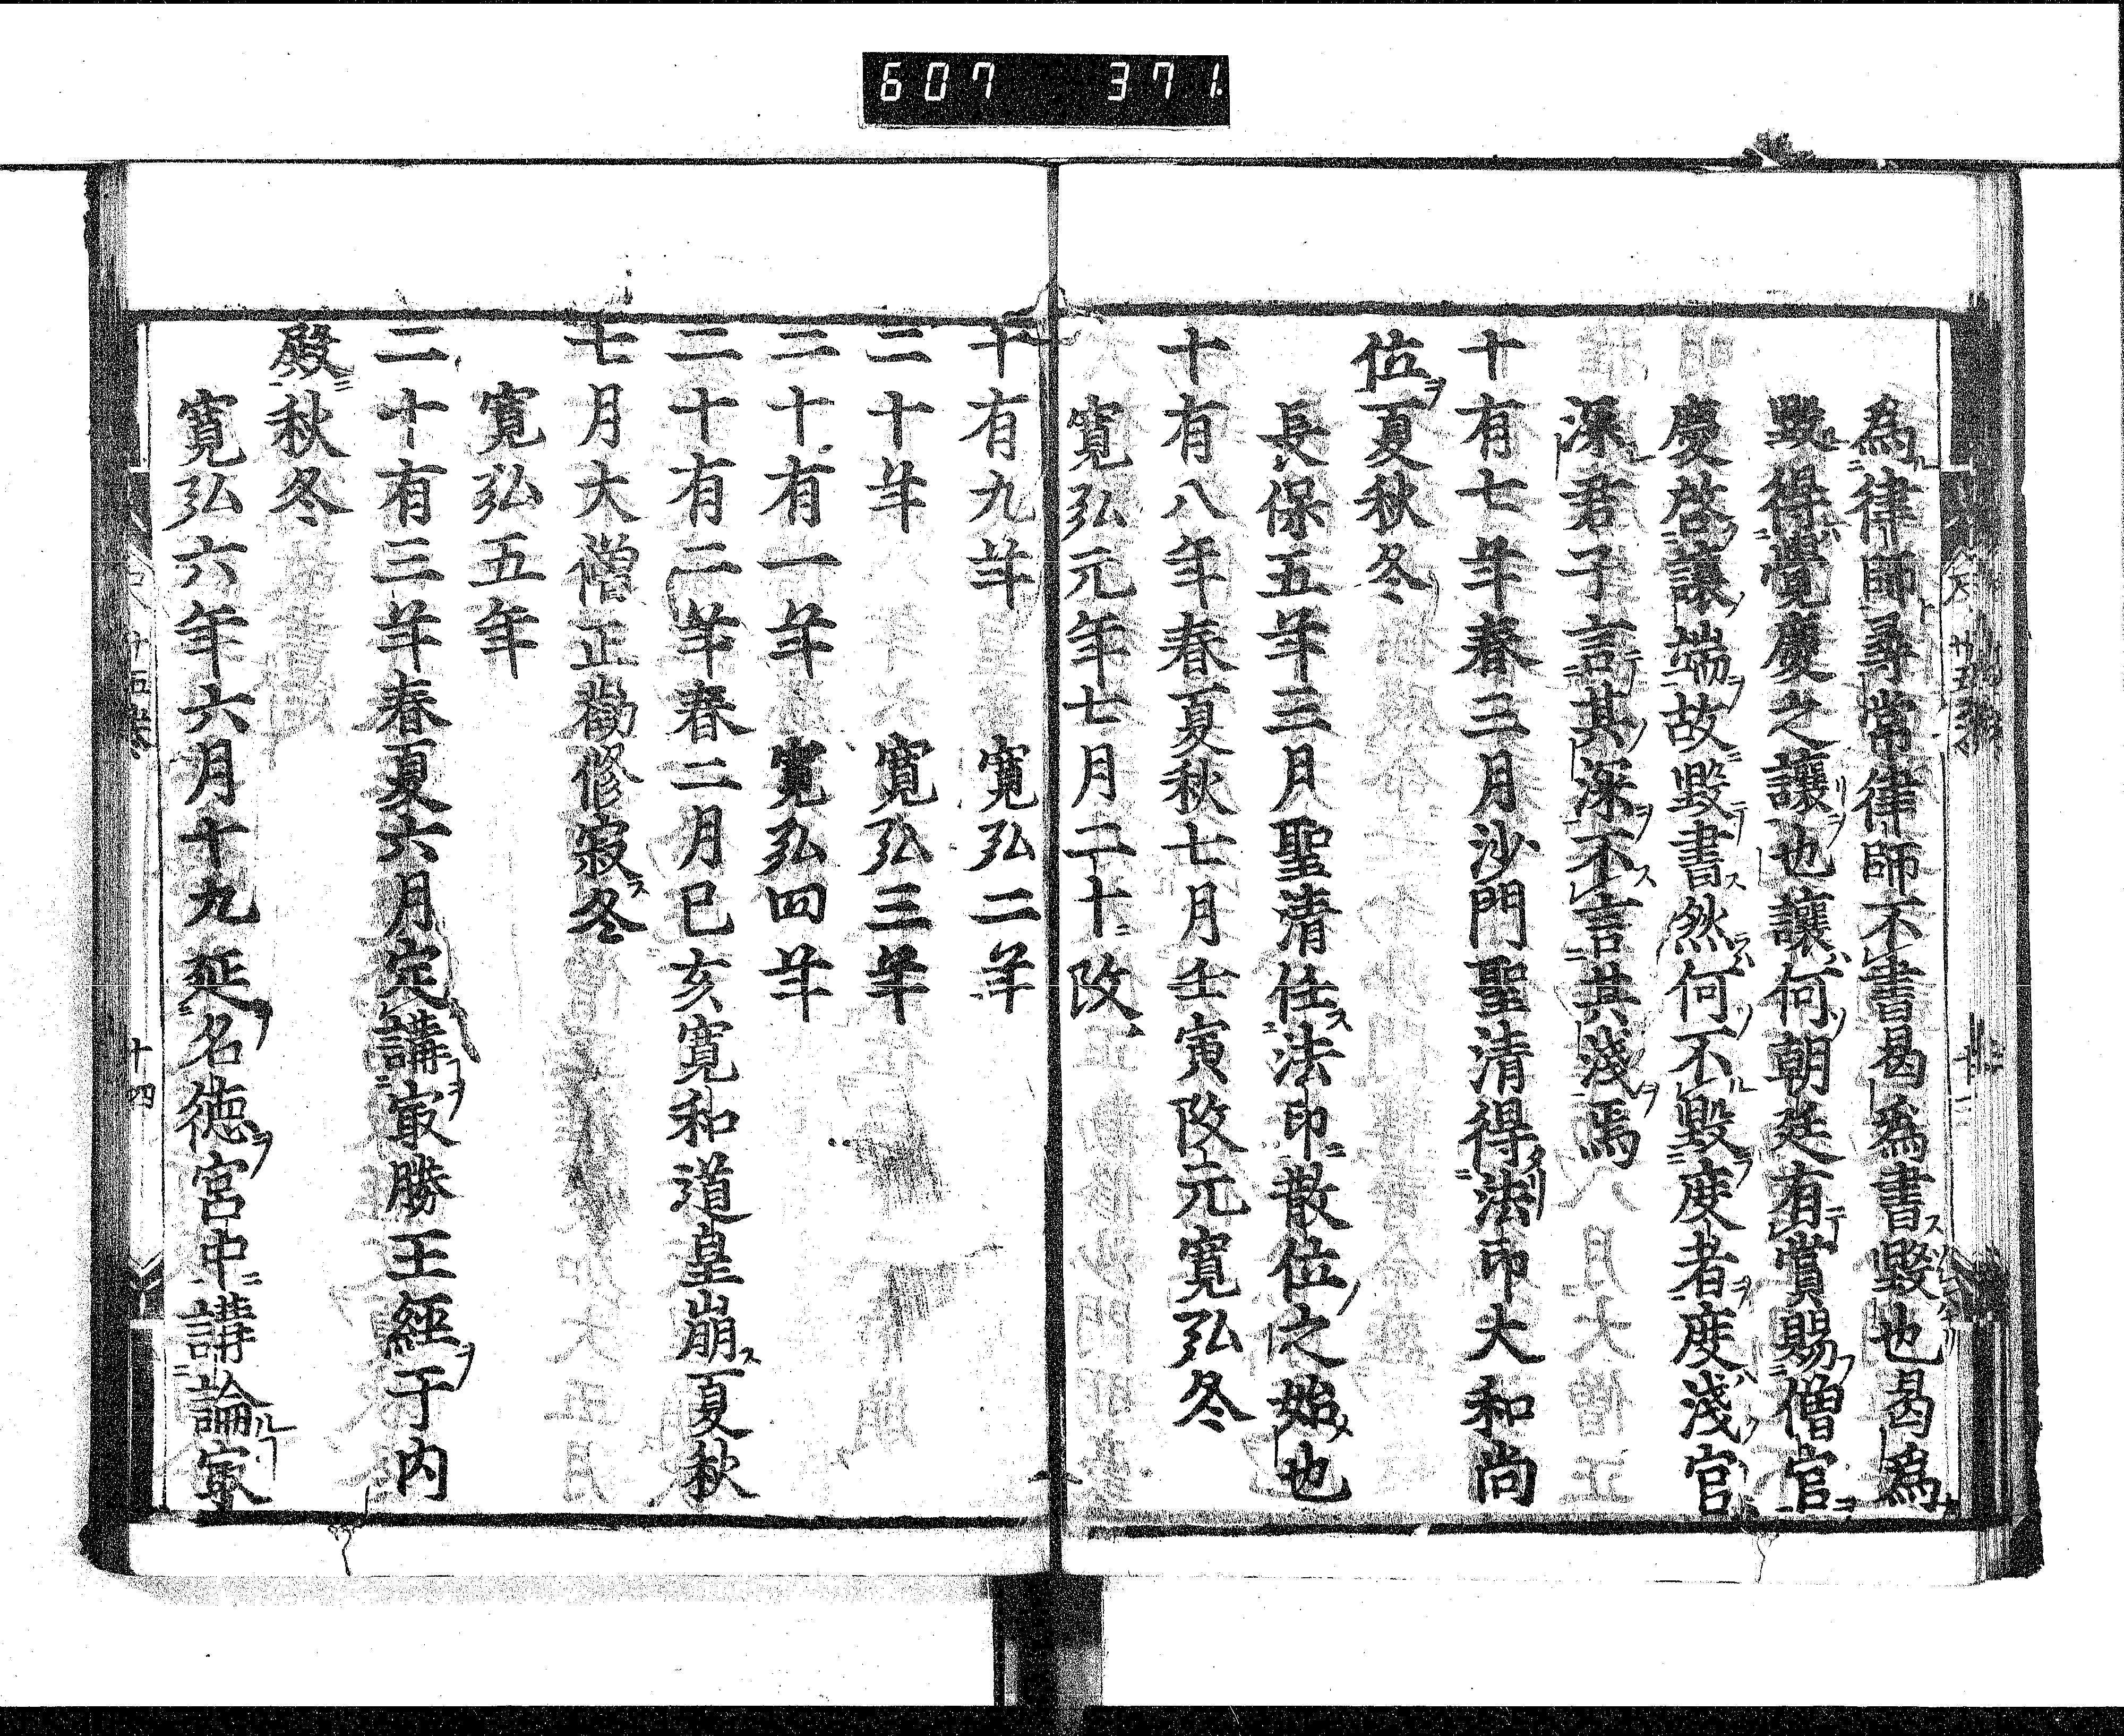 607 371.
爲律師尋常律師不書曷爲書毀也曷爲
毀得覚慶之讓也讓何朝廷有賞賜僧官
慶啓讓端故毀書然何不毀度者度淺官
深君子言其深不言其淺焉
十有七年春三月沙門聖清得法印大和尚
位夏秋冬
長保五年三月聖清任法印散位之始也
十有八年春夏秋七月壬寅改元寛弘冬
寛弘元年七月二十改
十有九年 寛弘二年
二十年 寛弘三年
二十有一年 寛弘四年
二十有二年春二月已亥寛和道皇崩夏秋
七月大僧正勸修寂冬
寛弘五年
二十有三年春夏六月定講㝡勝王經于内
殿秋冬
寛弘六年六月十九延名徳宮中講論㝡
十四